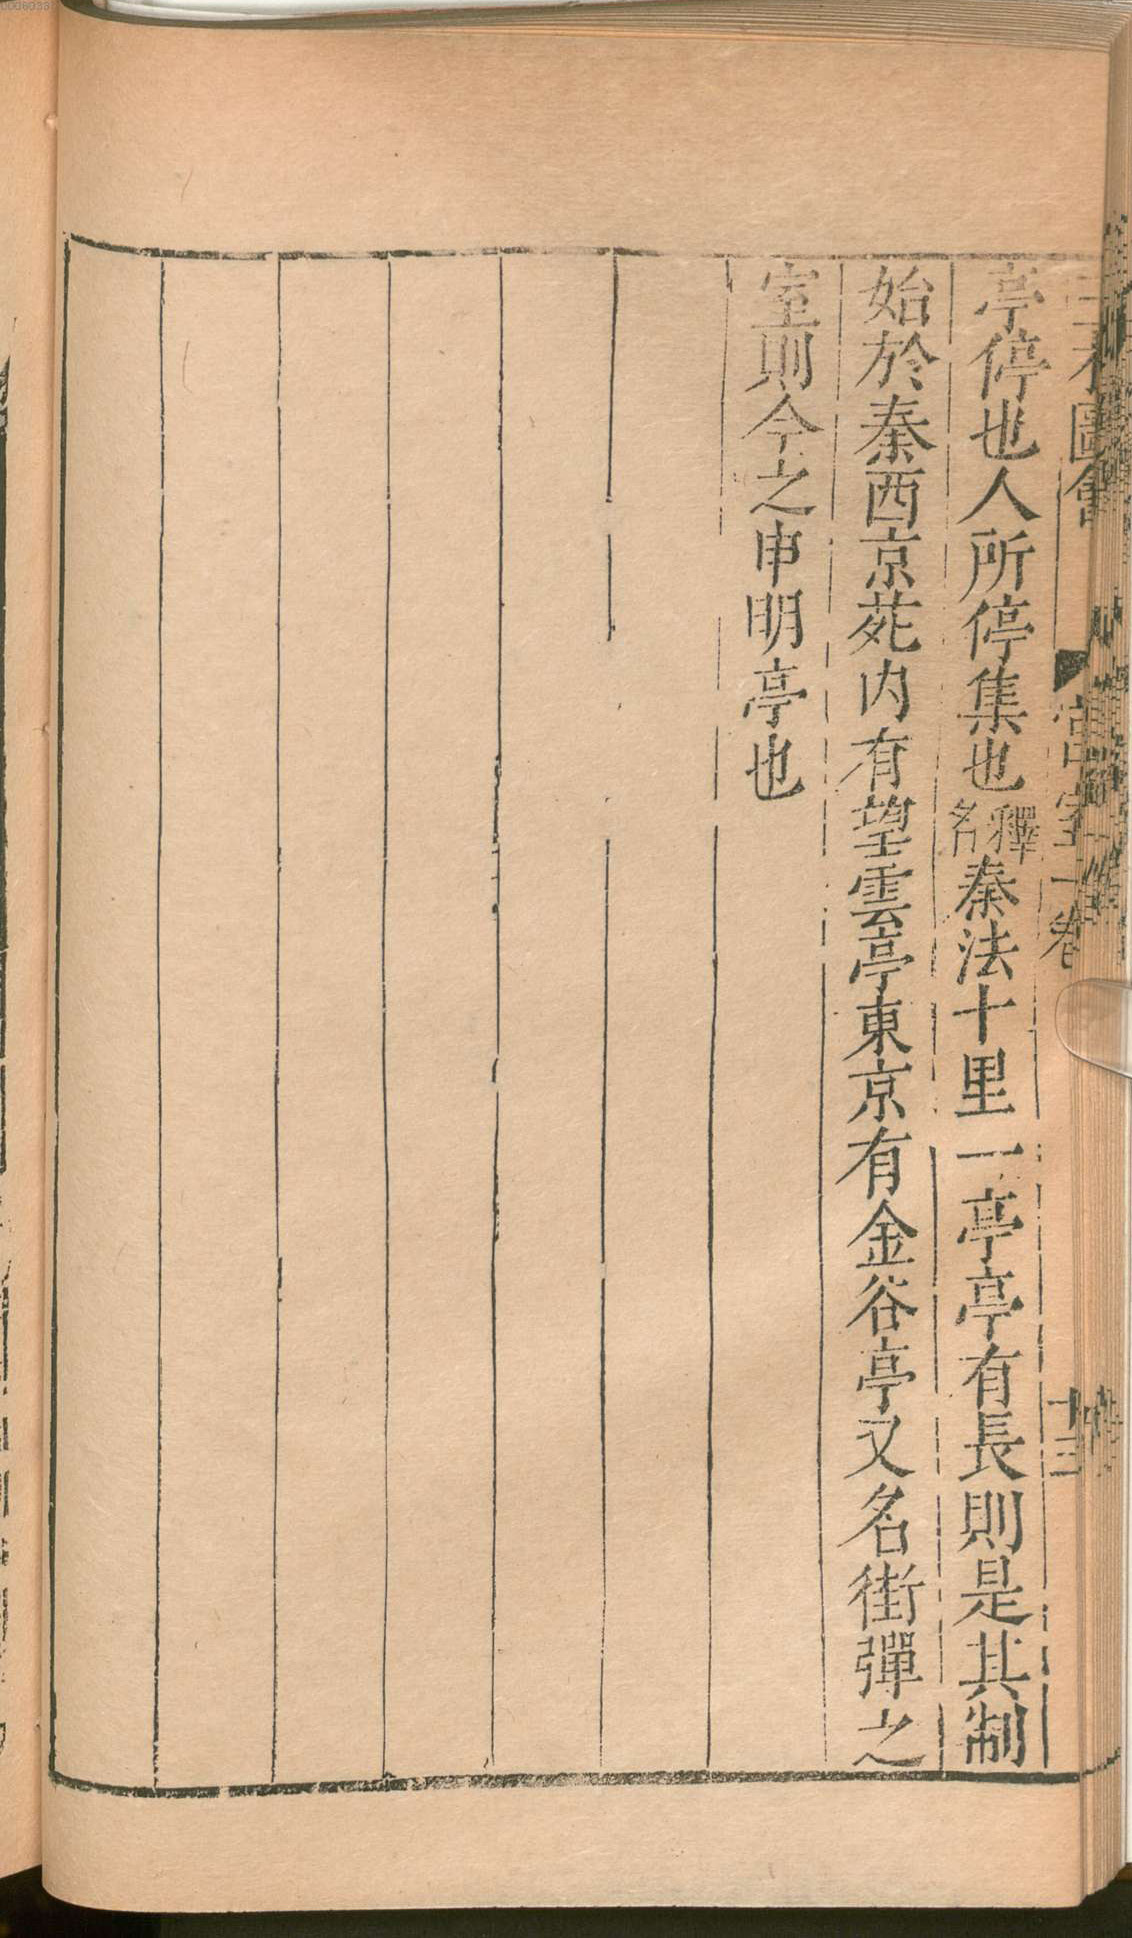 三才圖會 宮室一卷 十三
亭停也人所停集也釋名秦法十里一亭亭有長則是其制
始於秦西京苑内有望雲亭東京有金谷亭又名街彈之
室則今之申明亭也